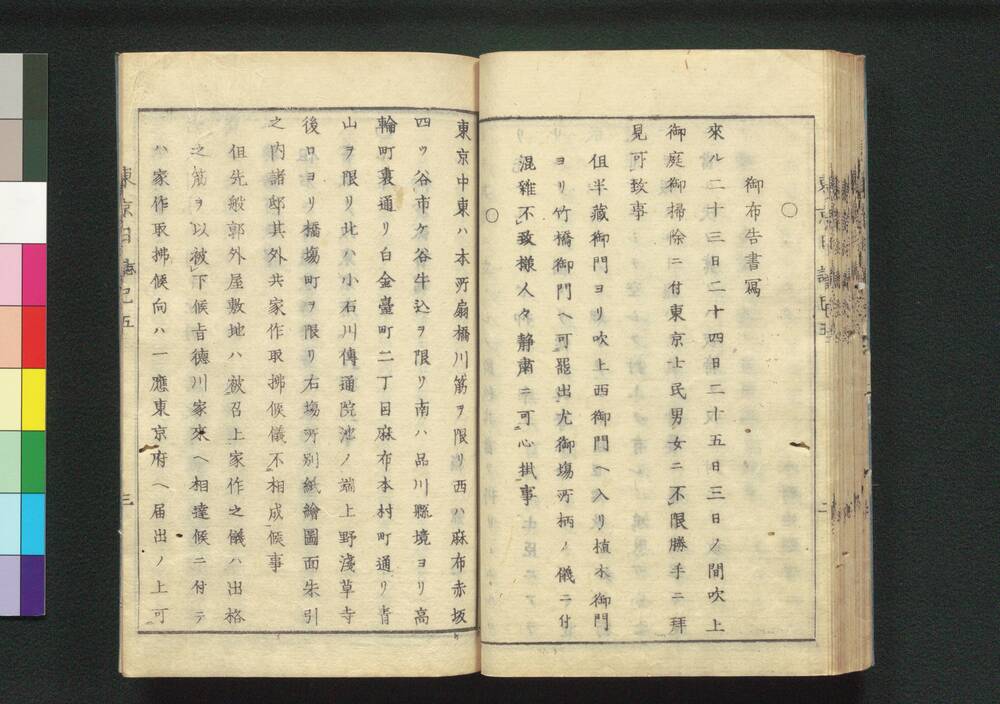 ○
御布告書寫
來ル二十三日二十四日二十五日三日ノ間吹上
御庭御掃除ニ付東京士民男女ニ不限勝手ニ拜
見可致事
但半藏御門ヨリ吹上西御門ヘ入リ植木御門
ヨリ竹橋御門ヘ可罷出尤御塲所柄ノ儀ニ付
混雜不致様人々靜肅ニ可心掛事
○
東京中東ハ本所扇橋川筋ヲ限リ西ハ麻布赤坂
四ツ谷市ケ谷牛込ヲ限リ南ハ品川縣境ヨリ高
輪町裏通リ白金臺町二丁目麻布本村町通リ青
山ヲ限リ北ハ小石川傳通院池ノ端上野淺草寺
後ロヨリ橋塲町ヲ限リ右塲所別紙繪圖面朱引
之内諸邸其外共家作取拂候儀不相成候事
但先般郭外屋敷地ハ被召上家作之儀ハ出格
之筋ヲ以被下候旨德川家來ヘ相達候ニ付テ
ハ家作取拂候向ハ一應東京府ヘ届出ノ上可
東京日誌己五
三